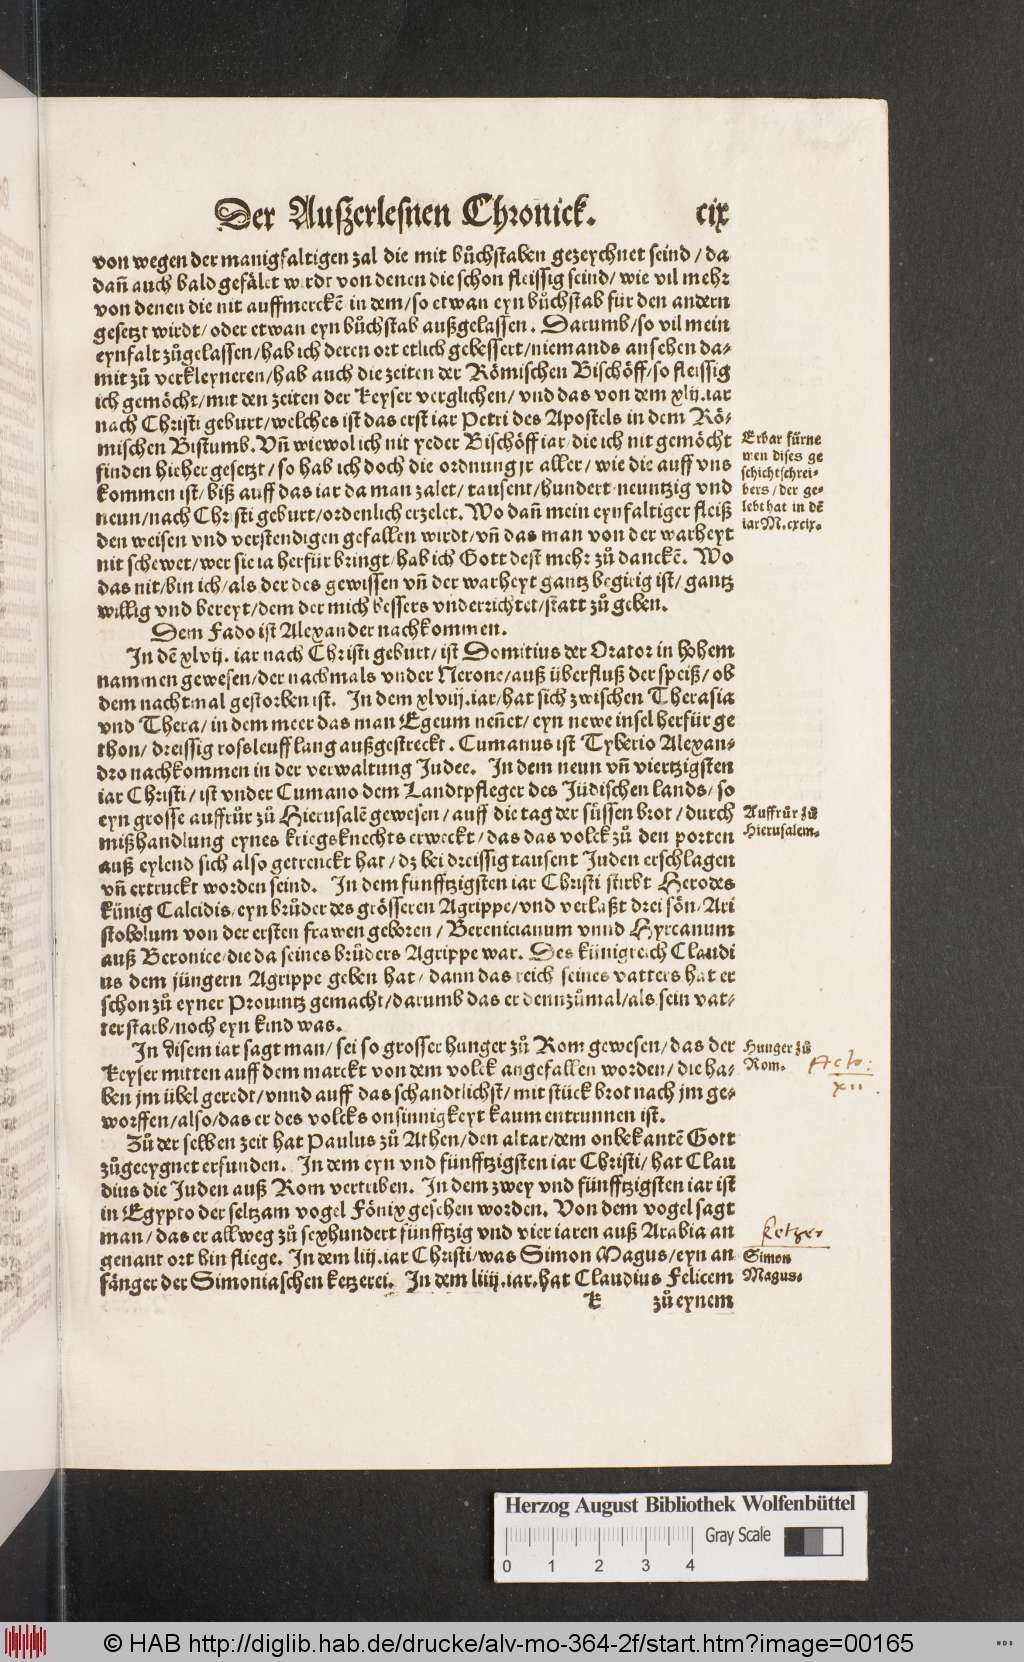 Der Außerlesnen Chronick. cix
von wegen der manigfaltigen zal die mit bůchstaben gezeychnet seind / da
dañ auch bald gefälet wirdt von denen die schon fleissig seind / wie vil mehr
von denen die nit auffmerckē in dem / so etwan eyn bůchstab für den andern
gesetzt wirdt / oder etwan eyn bůchstab außgelassen. Darumb / so vil mein
eynfalt zůgelassen / hab ich deren ort etlich gebessert / niemands ansehen da-
mit zů verkleyneren / hab auch die zeiten der Römischen Bischöff / so fleissig
ich gemöcht / mit den zeiten der Keyser verglichen / vnd das von dem xlij. iar
nach Christi geburt / welches ist das erst iar Petri des Apostels in dem Rö-
mischen Bistumb. Vñ wiewol ich nit yeder Bischöff iar / die ich nit gemöcht
finden hieher gesetzt / so hab ich doch die ordnung jr aller / wie die auff vns
kommen ist / biß auff das iar da man zalet / tausent / hundert neuntzig vnd
neun / nach Christi geburt / ordenlich erzelet. Wo dañ mein eynfaltiger fleiß
den weisen vnd verstendigen gefallen wirdt / vñ das man von der warheyt
nit schewet / wer sie ia herfür bringt / hab ich Gott dest mehr zů danckē. Wo
das nit / bin ich / als der des gewissen vñ der warheyt gantz begirig ist / gantz
willig vnd bereyt / dem der mich bessers vnderrichtet / statt zů geben.
Erbar fürne
men dises ge
schichtschrei-
bers / der ge-
lebt hat in dē
iar M.cxcix.
Dem Fado ist Alexander nachkommen.
In dē xlvij. iar nach Christi geburt / ist Domitius der Orator in hohem
nammen gewesen / der nachmals vnder Nerone / auß überfluß der speiß / ob
dem nachtmal gestorben ist. In dem xlviij. iar / hat sich zwischen Therasia
vnd Thera / in dem meer das man Egeum neñet / eyn newe insel herfür ge
thon / dreissig rossleuff lang außgestreckt. Cumanus ist Tyberio Alexan-
dro nachkommen in der verwaltung Judee. In dem neun vñ viertzigsten
iar Christi / ist vnder Cumano dem Landtpfleger des Jüdischen lands / so
eyn grosse auffrůr zů Hierusalē gewesen / auff die tag der süssen brot / durch
mißhandlung eynes kriegsknechts erweckt / das das volck zů den porten
auß eylend sich also getrenckt hat / dz bei dreissig tausent Juden erschlagen
vñ ertruckt worden seind. In dem fünfftzigsten iar Christi stirbt Herodes
künig Calcidis / eyn brůder des grösseren Agrippe / vnd verlaßt drei sön / Ari
stobolum von der ersten frawen geboren / Berenicianum vnnd Hyrcanum
auß Beronice / die da seines brůders Agrippe war. Des künigreich Claudi
us dem jüngern Agrippe geben hat / dann das reich seines vatters hat er
schon zů eyner Prouintz gemacht / darumb das er dennzůmal / als sein vat-
ter starb / noch eyn kind was.
Auffrůr zů
Hierusalem.
In disem iar sagt man / sei so grosser hunger zů Rom gewesen / das der
Keyser mitten auff dem marckt von dem volck angefallen worden / die ha-
ben jm übel geredt / vnnd auff das schandtlichst / mit stück brot nach jm ge-
worffen / also / das er des volcks onsinnigkeyt kaum entrunnen ist.
Hunger zů
Rom.
Acto:
xii
Zů der selben zeit hat Paulus zů Athen / den altar / dem onbekantē Gott
zůgeeygnet erfunden. In dem eyn vnd fünfftzigsten iar Christi / hat Clau
dius die Juden auß Rom vertriben. In dem zwey vnd fünfftzigsten iar ist
in Egypto der seltzam vogel Fönix gesehen worden. Von dem vogel sagt
man / das er allweg zů sexhundert fünfftzig vnd vier iaren auß Arabia an
genant ort hin fliege. In dem liij. iar Christi / was Simon Magus / eyn an
fänger der Simoniaschen ketzerei. In dem liiij. iar. hat Claudius Felicem
Ketzer
Simon
Magus.
K zů eynem
Herzog August Bibliothek Wolfenbüttel
Gray Scale
0 1 2 3 4
© HAB http://diglib.hab.de/drucke/alv-mo-364-2f/start.htm?image=00165